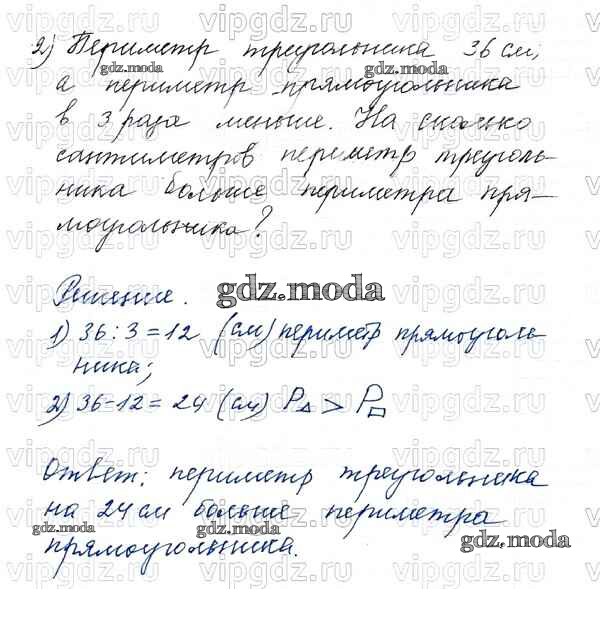 2) Периметр треугольника 36 см,
а периметр прямоугольника
в 3 раза меньше. На сколько
сантиметров периметр треуголь-
ника больше периметра пря-
моугольника?
Решение.
1) 36 : 3 = 12 (см) периметр прямоуголь-
ника;
2) 36-12 = 24 (см) P△ > P□
Ответ: периметр треугольника
на 24 см больше периметра
прямоугольника.
gdz.moda
vipgdz.ru